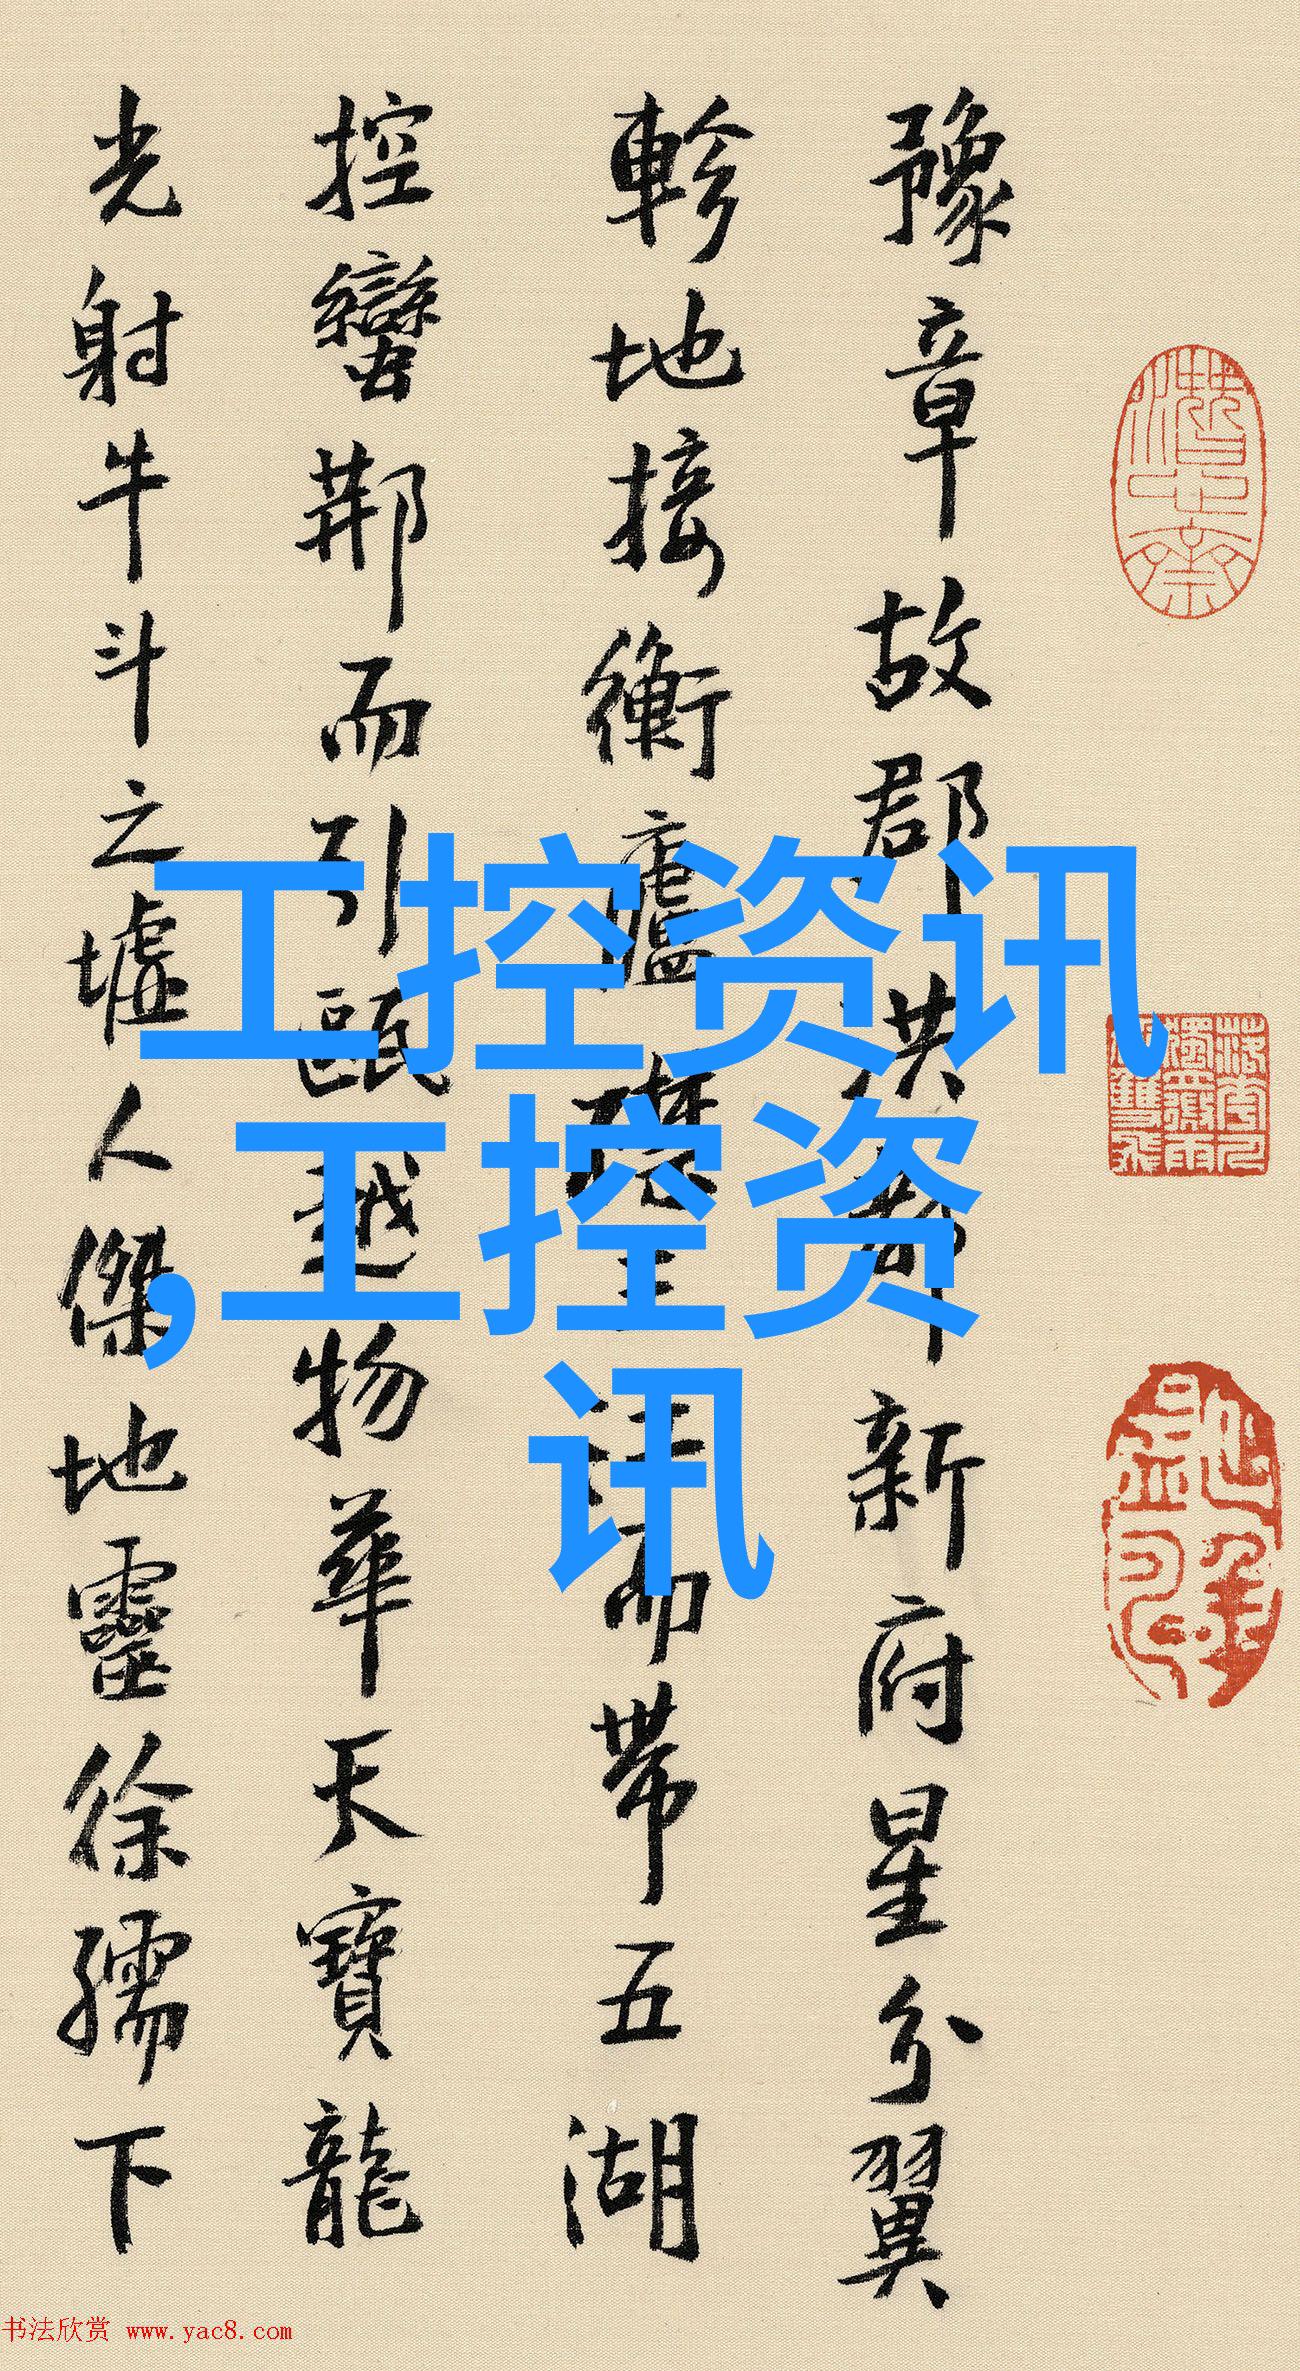 豫章故郡洪都新府星分翼
軫地接衡廬襟三江而帶五湖
控蠻荆而引甌越物華天寶龍
光射牛斗之墟人傑地靈徐孺下
工控资讯
,工控资
讯
书法欣赏 www.yac8.com